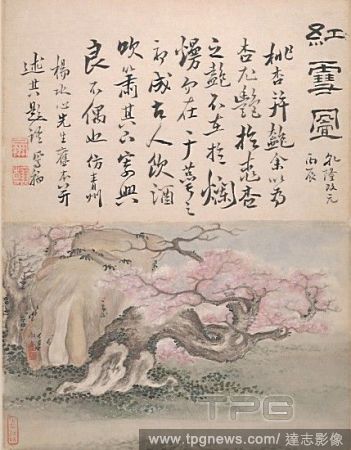 紅雪圖
乾隆改元
丙辰
桃杏并艷余以為
杏尤艷於桃杏
之艷不在於爛
熳而在于
初成古人飲酒
吹簫其下寄興
良不偶也仿青州
楊水心先生舊本并
述其題語
TPG
www.tpgnews.com / 達志影像